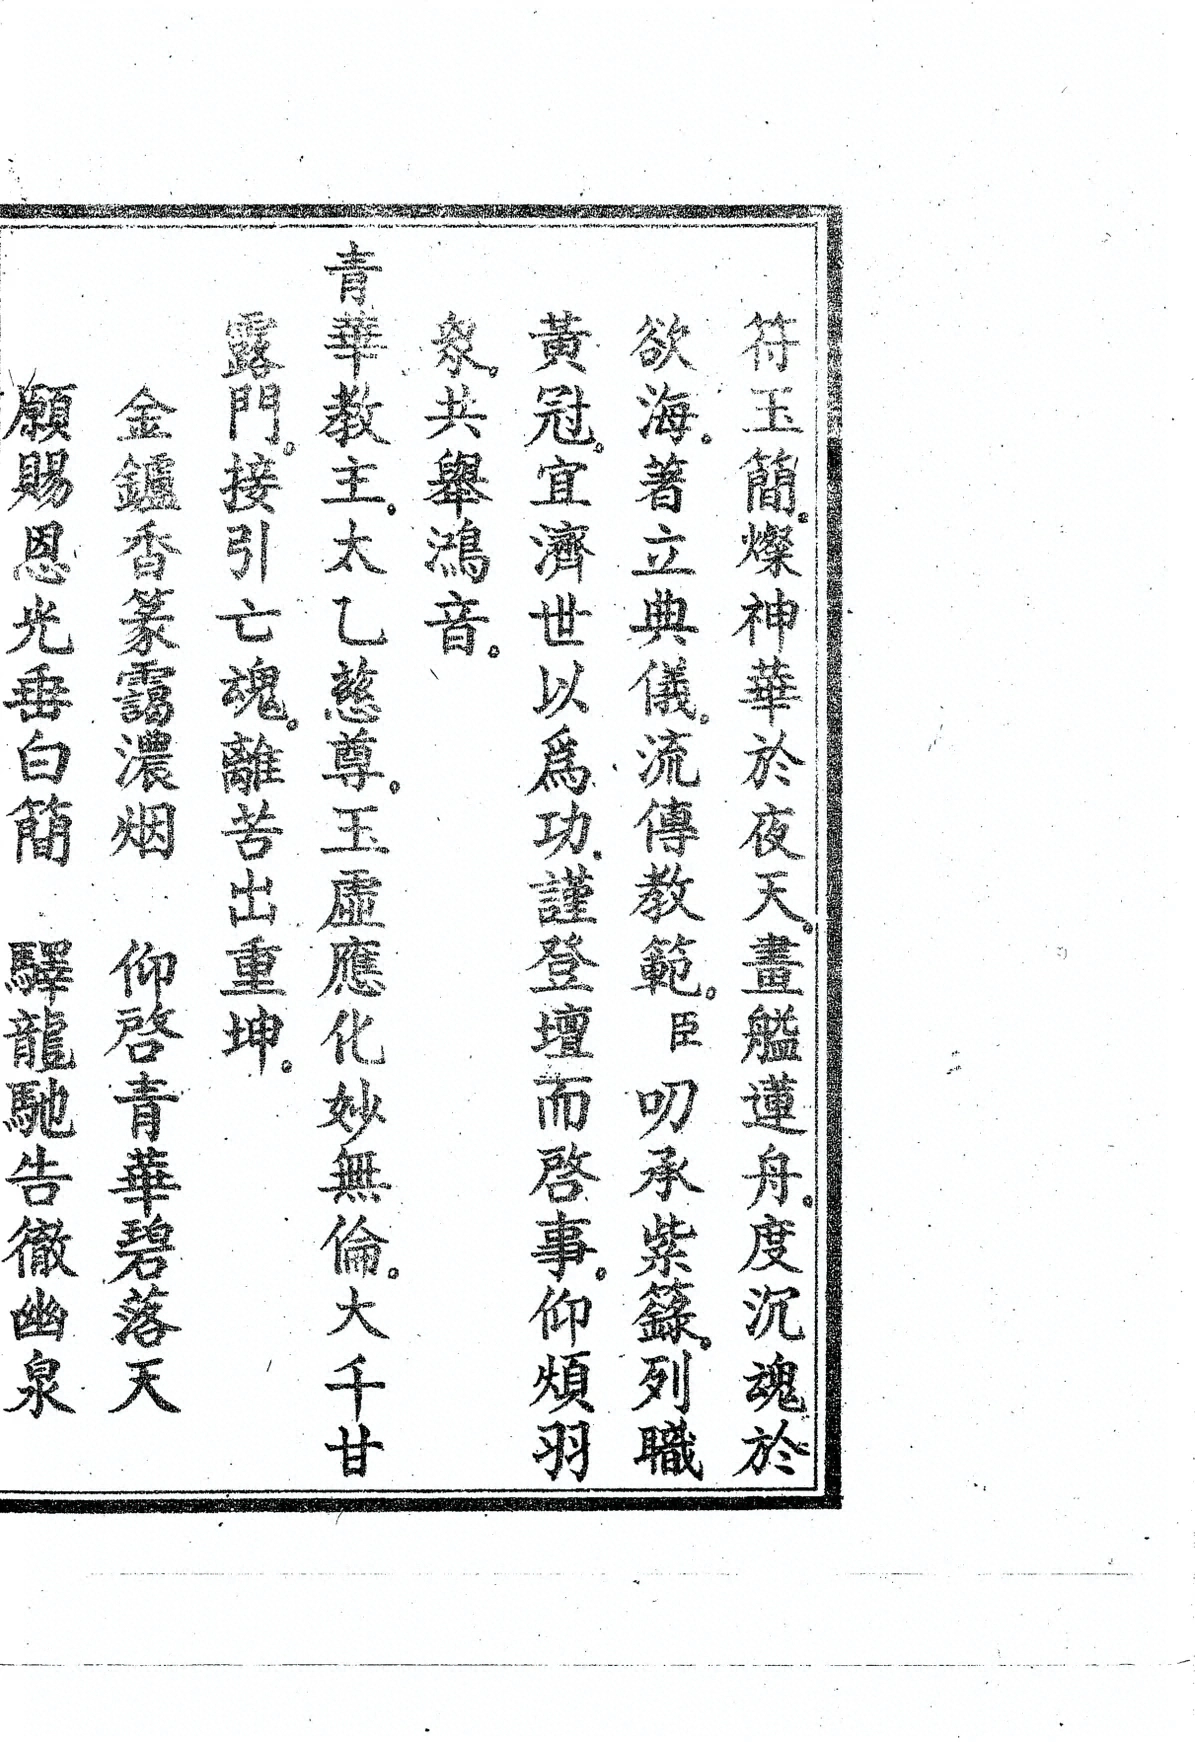 符玉簡。燦神華於夜天。畫艦蓮舟。度沉魂於
欲海。著立典儀。流傳教範。臣叨承紫籙。列職
黃冠。宜濟世以爲功。謹登壇而啓事。仰煩羽
衆。共舉鴻音。
青華教主。太乙慈尊。玉虛應化妙無倫。大千甘
露門。接引亡魂。離苦出重坤。
金鑪香篆靄濃烟　仰啓青華碧落天
願賜恩光垂白簡　驛龍馳告徹幽泉